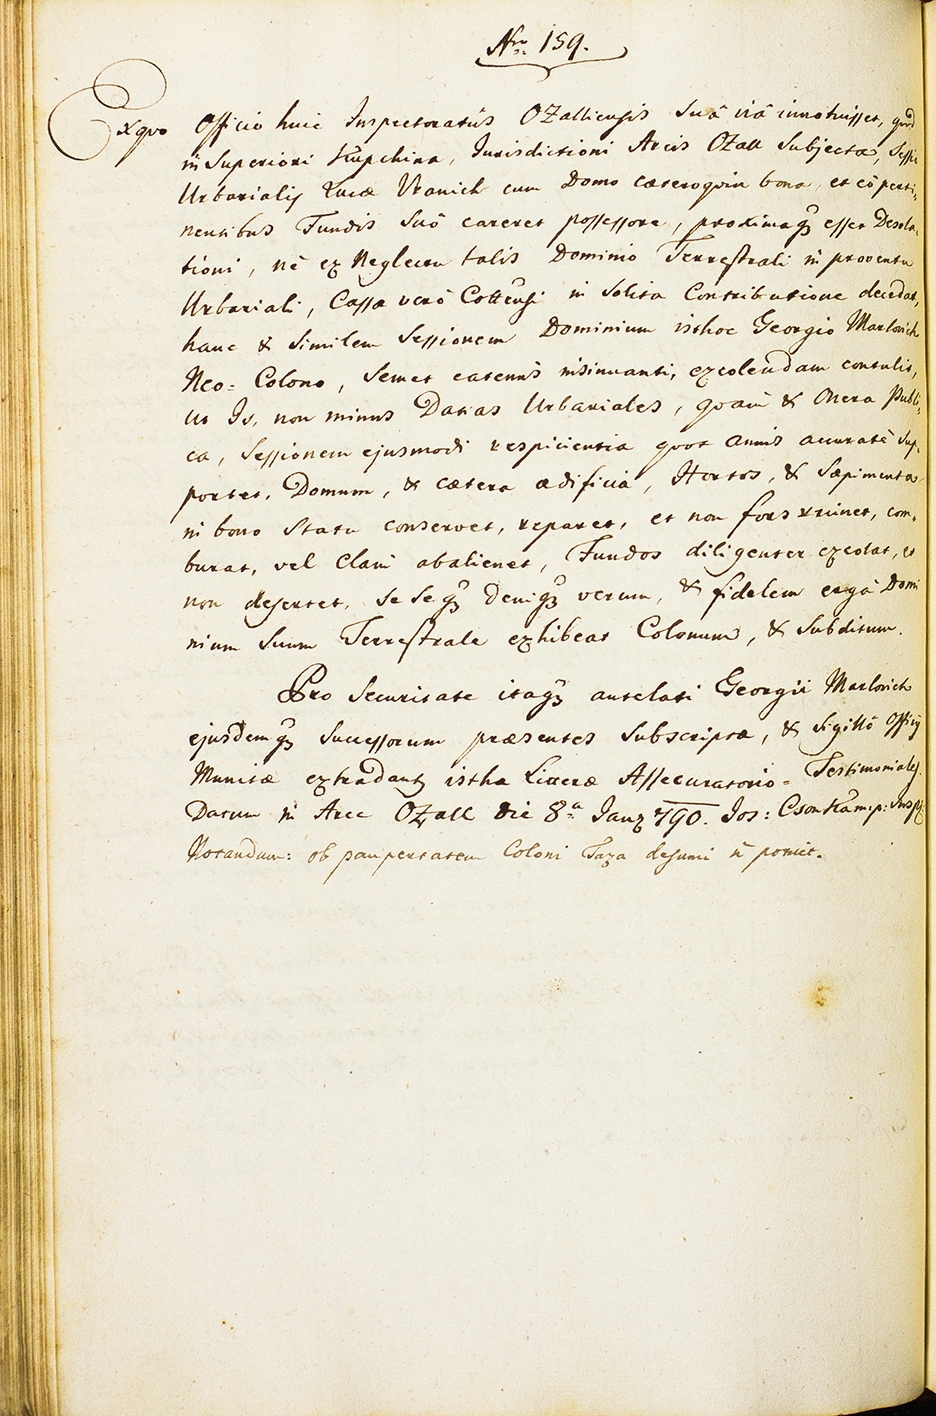 Nro 159.
Exquo Officio huic Inspectoratûs OZalliensis Suâ viâ innotuisset, quod
in Superiori Kupchina, Jurisdictioni Arcis OZall Subjecta, Sessio
Urbarialis Lucæ Vranich cum Domo cæteroquin bona, et eô perti-
nentibus Fundis Suô careret possessore, proximaq3 esset Desola-
tioni, nè ex Neglectu talis Dominio Terrestrali in proventu
Urbariali, Cassa verò Cottensi in Solita Contributione decedat,
hanc & Similem Sessionem Dominium isthoc Georgio Marlovich
Neo-Colono, Semet eatenus insinuanti, excolendam contulit,
Ut Is, non minus Datias Urbariales, quàm & Onera Publi-
ca, Sessionem ejusmodi respicientia quot annis accuratè Sup-
portet, Domum, & cætera ædificia, Hortos, & Sæpimenta
in bono Statu conservet, reparet, et non fors ruinet, com-
burat, vel Clam abalienet, Fundos diligenter excolat, et
non desertet, Se Seq3 deniq3 verum, & fidelem ergà Domi
nium Suum Terrestrale exhibeat Colonum, & Subditum.
Pro Securitate itaq3 antelati Georgii Marlovich
ejusdemq3 Successorum præsentes Subscriptæ, & Sigillô Officij
Munitæ extradantur isthæ Litteræ Assecuratorio-Testimoniales.
Datum in Arce OZall die 8a Janu 790. Jos: Csonka m:p: Insp
Notandum: ob paupertatem Coloni Taxa desumi ñ potuit.